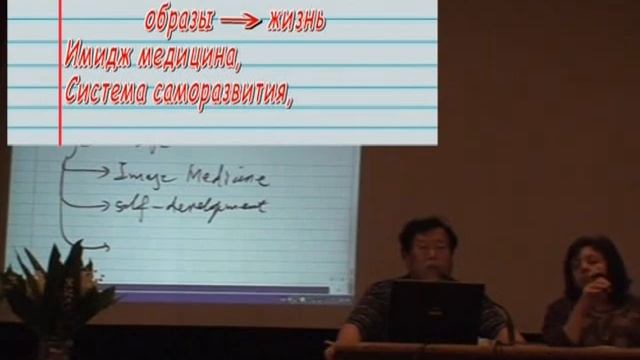 образы → жизнь
Имидж медицина,
Система саморазвития,
→ Image Medicine
→ self-development
→